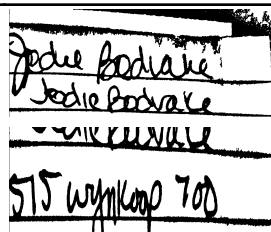 Jodie Bodvake
Jodie Bodvake
575 Wynkoop 700